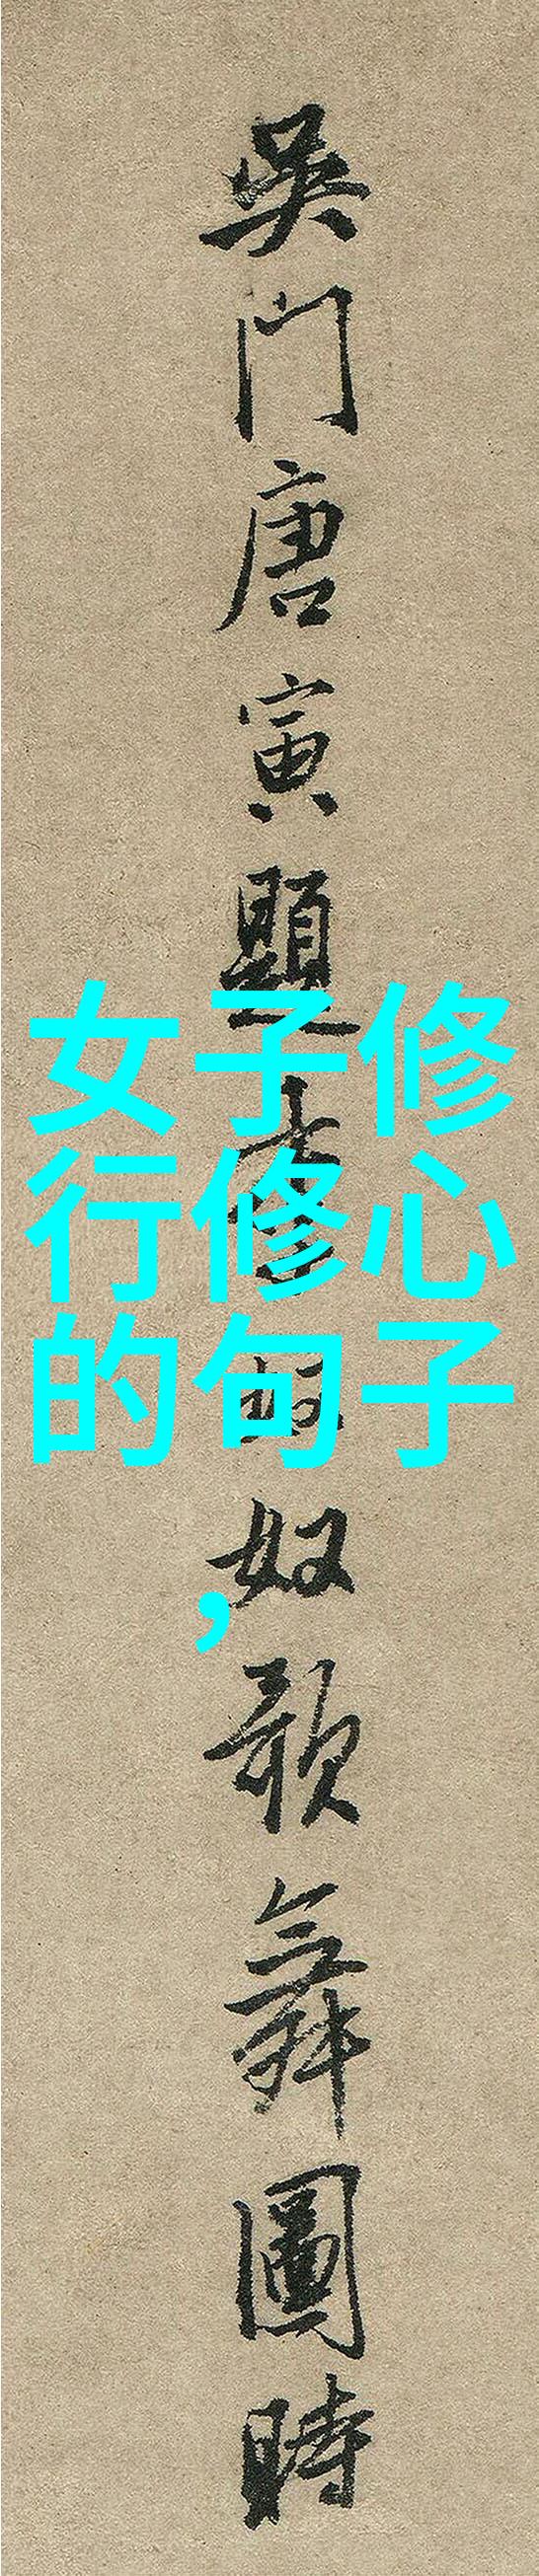 吳門唐寅題李奴奴歌舞圖時
女子修
行修心
的句子
,